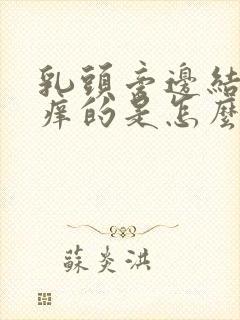 乳頭旁邊結
痒的是怎麼
蘇炎洪